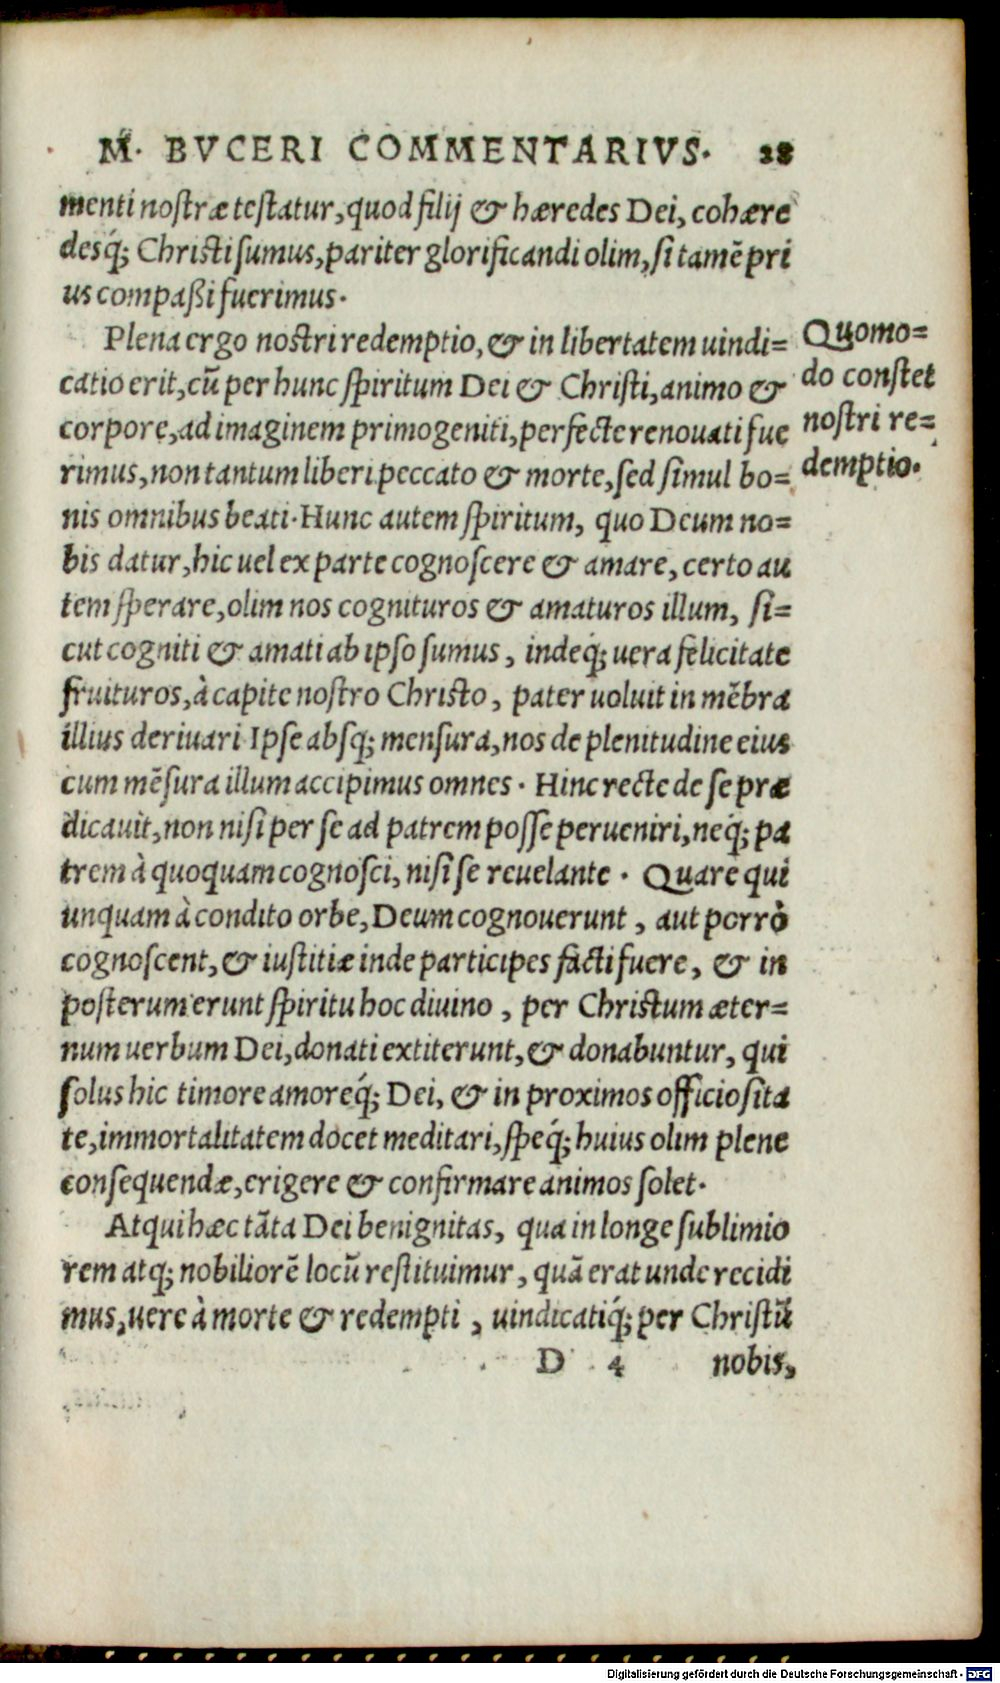 M. BVCERI COMMENTARIVS. 28
menti nostræ testatur, quod filij & hæredes Dei, cohære
desq́; Christi sumus, pariter glorificandi olim, si tamẽ pri
us compaßi fuerimus.
Plena ergo nostri redemptio, & in libertatem uindi=
catio erit, cũ per hunc spiritum Dei & Christi, animo &
corpore, ad imaginem primogeniti, perfecte renouati fue
rimus, non tantum liberi peccato & morte, sed simul bo=
nis omnibus beati. Hunc autem spiritum, quo Deum no=
bis datur, hic uel ex parte cognoscere & amare, certo au
tem sperare, olim nos cognituros & amaturos illum, si=
cut cogniti & amati ab ipso sumus, indeq́; uera felicitate
fruituros, à capite nostro Christo, pater uoluit in mẽbra
illius deriuari Ipse absq; mensura, nos de plenitudine eius
cum mẽsura illum accipimus omnes. Hinc recte de se præ
dicauit, non nisi per se ad patrem posse perueniri, neq́; pa
trem à quoquam cognosci, nisi se reuelante. Quare qui
unquam à condito orbe, Deum cognouerunt, aut porrò
cognoscent, & iustitiæ inde participes facti fuere, & in
posterum erunt spiritu hoc diuino, per Christum æter=
num uerbum Dei, donati extiterunt, & donabuntur, qui
solus hic timore amoreq́; Dei, & in proximos officiosita
te, immortalitatem docet meditari, speq́; huius olim plene
consequendæ, erigere & confirmare animos solet.
Atqui hæc tãta Dei benignitas, qua in longe sublimio
rem atq; nobiliorẽ locũ restituimur, quã erat unde recidi
mus, uere à morte & redempti, uindicatiq́; per Christũ
D 4 nobis,
Quomo=
do constet
nostri re=
demptio.
Digitalisierung gefördert durch die Deutsche Forschungsgemeinschaft - DFG